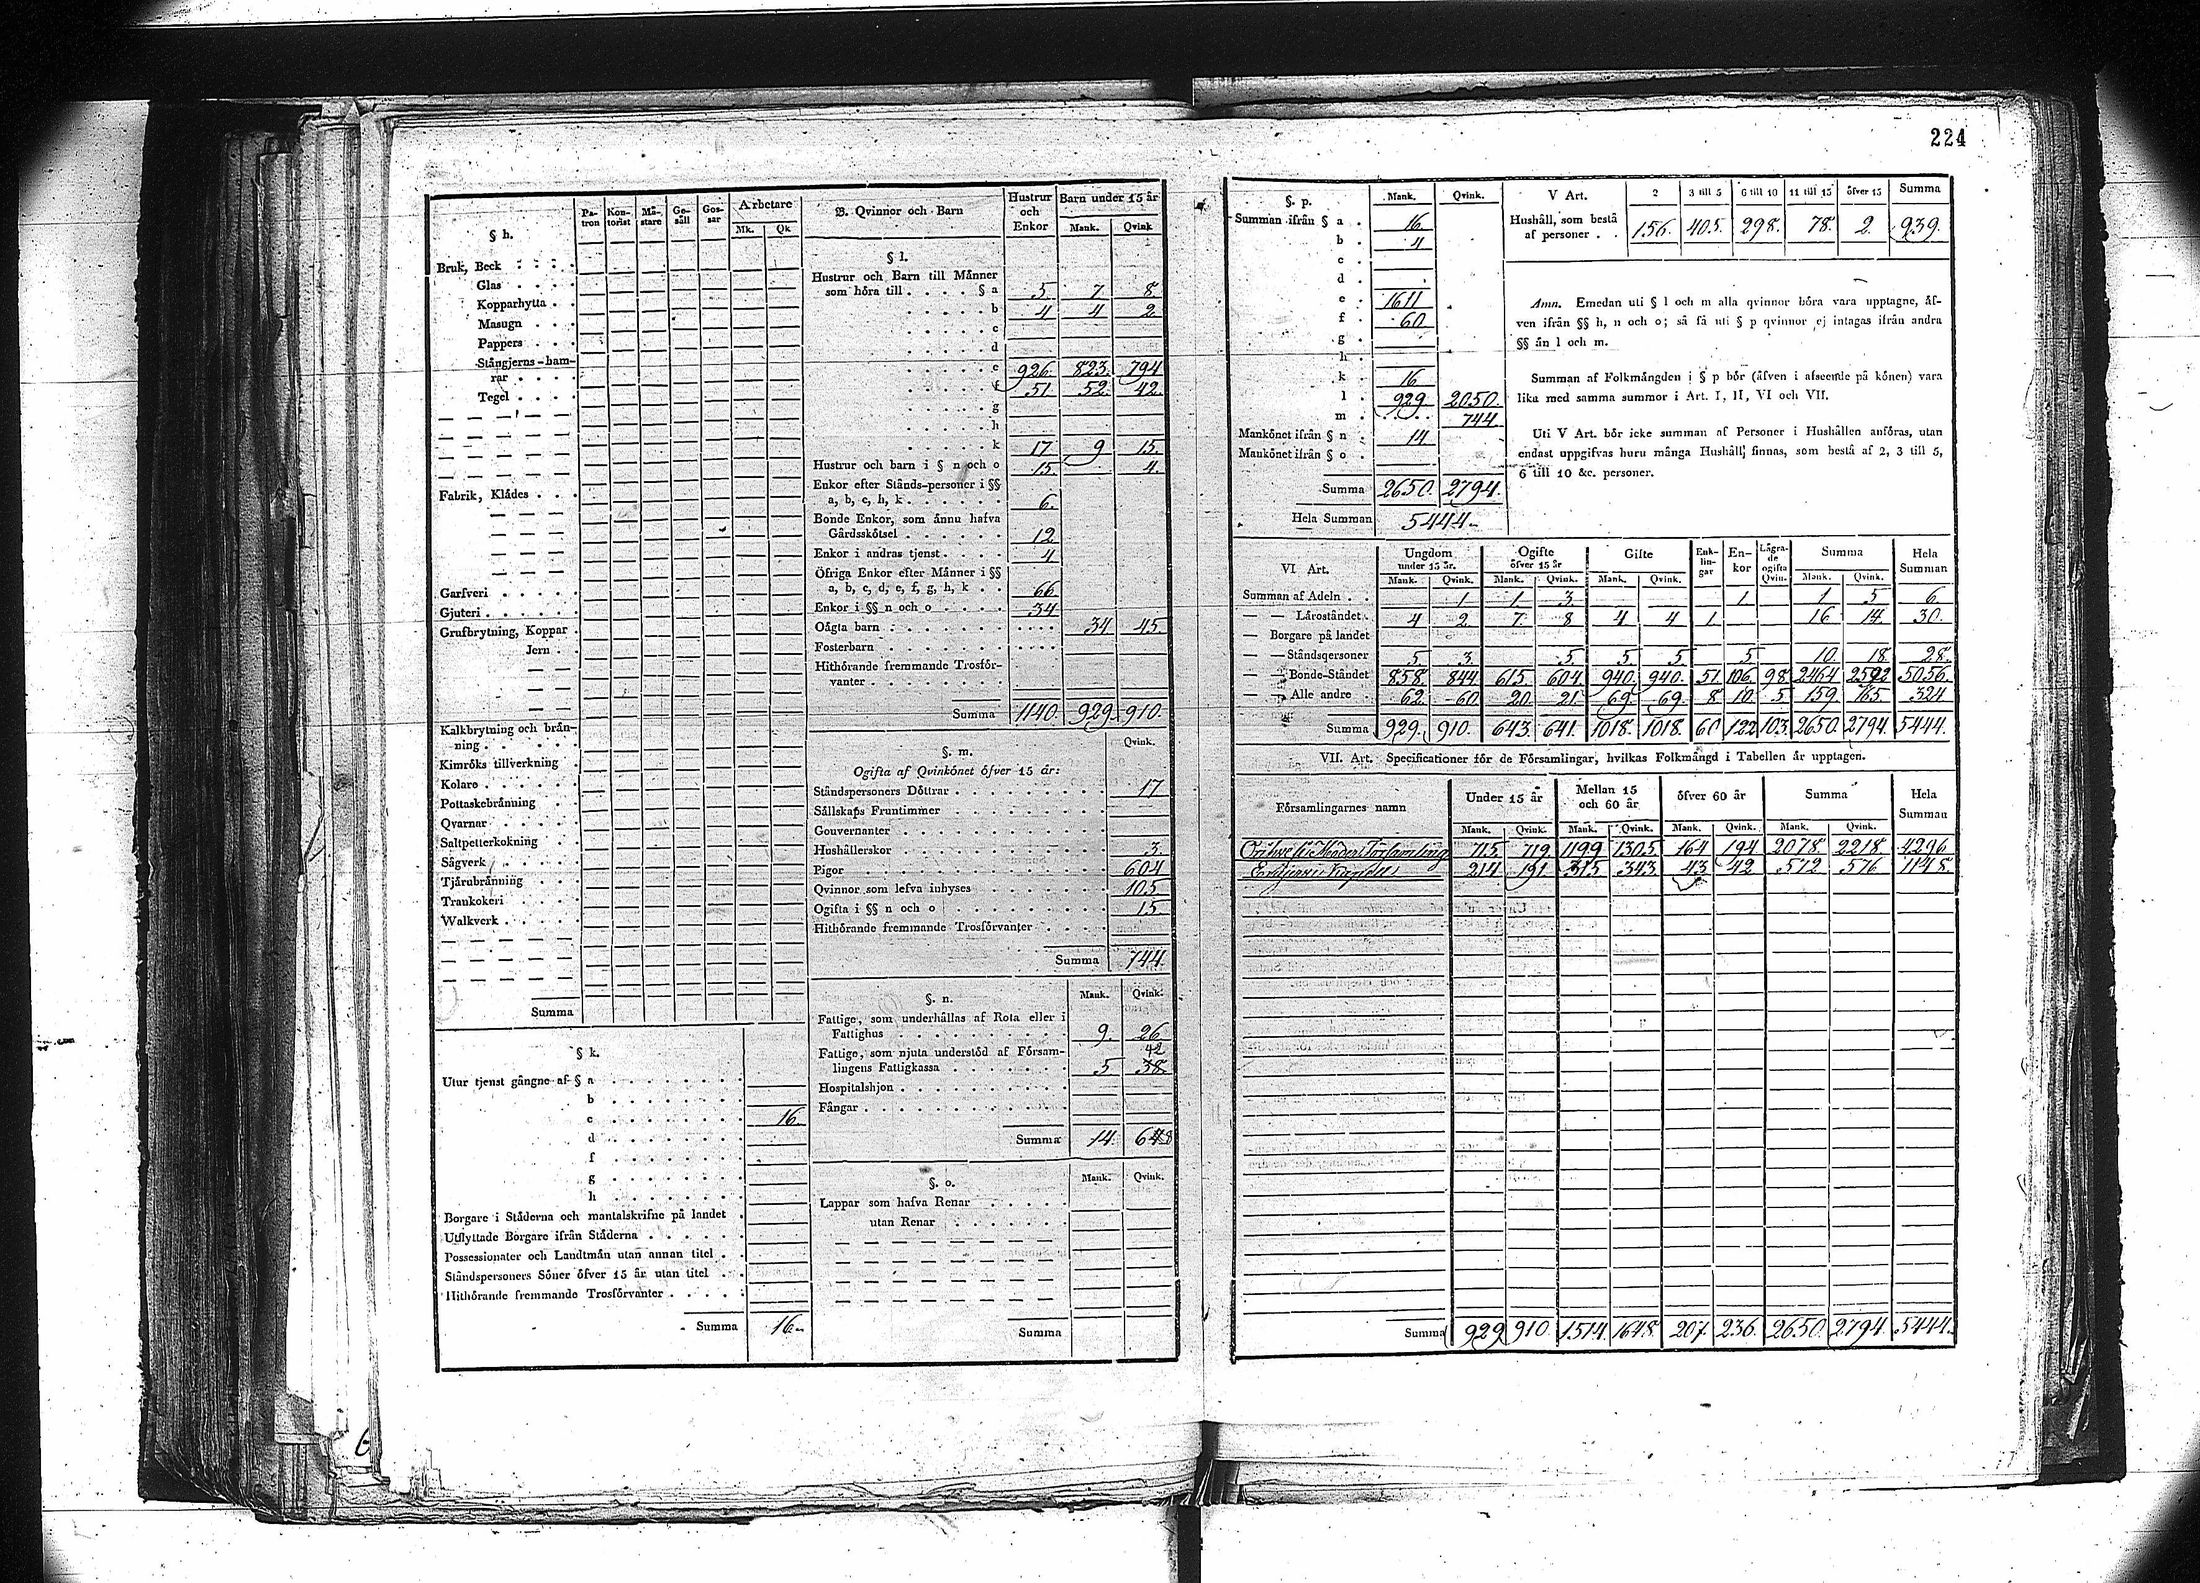 224
§ h.
Pa-tron Kon-torist Mä-stare Ge-säll Gos-sar Arbetare
Mk. Qk
Bruk, Beck
Glas
Kopparhytta
Masugn
Pappers
Stångjerns-ham-
rar
Tegel
Fabrik, Klädes
Garfveri
Gjuteri
Grufbrytning, Koppar
Jern
Kalkbrytning och brän-
ning
Kimröks tillverkning
Kolare
Pottaskebränning
Qvarnar
Saltpetterkokning
Sågverk
Tjärubränning
Trankokeri
Walkverk
Summa
§ k.
Utur tjenst gångne af § a
b
c 16.
d
f
g
h
Borgare i Städerna och mantalskrifne på landet
Utflyttade Borgare ifrån Städerna
Possessionater och Landtmän utan annan titel
Ståndspersoners Söner öfver 15 år utan titel
Hithörande fremmande Trosförvanter
Summa 16.
B. Qvinnor och Barn Hustrur och Enkor Barn under 15 år
Mank. Qvink
§ l.
Hustrur och Barn till Männer
som höra till § a 5. 7. 8.
b 4 4 2.
c
d
e 926. 823. 794
f 51. 52. 42.
g
h
k 17 9 15.
Hustrur och barn i § n och o 15. 4.
Enkor efter Stånds-personer i §§
a, b, c, h, k 6.
Bonde Enkor, som ännu hafva
Gårdsskötsel 12
Enkor i andras tjenst 4
Öfriga Enkor efter Männer i §§
a, b, c, d, e, f, g, h, k 66.
Enkor i §§ n och o 34
Oägta barn 34 45.
Fosterbarn
Hithörande fremmande Trosför-
vanter
Summa 1140. 929. 910.
§. m. Qvink.
Ogifta af Qvinkönet öfver 15 år:
Ståndspersoners Döttrar 17
Sällskaps Fruntimmer
Gouvernanter
Hushållerskor 3.
Pigor 604
Qvinnor som lefva inhyses 105
Ogifta i §§ n och o 15.
Hithörande fremmande Trosförvanter
Summa 744.
§. n. Mank. Qvink.
Fattige, som underhållas af Rota eller i
Fattighus 9. 26
Fattige, som njuta understöd af Försam- 42
lingens Fattigkassa 5 38.
Hospitalshjon
Fångar
Summa 14.
§. o. Mank. Qvink.
Lappar som hafva Renar
utan Renar
Summa
§. p. Mank. Qvink.
Summan ifrån § a 16.
b 4
c
d
e 1611
f 60
g
h
k 16
l 929 2050.
m 744
Mankönet ifrån § n 14
Mankönet ifrån § o
Summa 2650. 2794.
Hela Summan 5444.
V Art. 2 3 till 5 6 till 10 11 till 15 öfver 15 Summa
Hushåll, som bestå
af personer 156. 405. 298. 78. 2. 939.
Anm. Emedan uti § l och m alla qvinnor böra vara upptagne, äf-
ven ifrån §§ h, n och o; så få uti § p qvinnor ej intagas ifrån andra
§§ än l och m.
Summan af Folkmängden i § p bör (äfven i afseende på könen) vara
lika med samma summor i Art. I, II, VI och VII.
Uti V Art. bör icke summan af Personer i Hushållen anföras, utan
endast uppgifvas huru många Hushåll finnas, som bestå af 2, 3 till 5,
6 till 10 &c. personer.
VI Art. Ungdom under 15 år. Ogifte öfver 15 år Gifte Enk-lin-gar En-kor Lägra-de ogifta Qvin. Summa Hela Summan
Mank. Qvink. Mank. Qvink. Mank. Qvink. Mank. Qvink.
Summan af Adeln 1 1. 3. 1. 1 5 6.
— Läroståndet 4 2. 7. 8 4 4 1. 16 14. 30.
— Borgare på landet
— Ståndspersoner 5. 3. 5. 5 5. 5. 10. 18. 28.
— Bonde-Ståndet 858. 844 615. 604. 940. 940. 51 106. 98 2464. 2592 5056.
— Alle andre 62. 60 20. 21. 69. 69. 8 10. 5 159. 165. 324
Summa 929. 910. 643. 641. 1018. 1018. 60 122 103. 2650. 2794. 5444.
VII. Art. Specificationer för de Församlingar, hvilkas Folkmängd i Tabellen är upptagen.
Församlingarnes namn Under 15 år Mellan 15 och 60 år öfver 60 år Summa Hela Summan
Mank. Qvink. Mank. Qvink. Mank. Qvink. Mank. Qvink.
Moder Församling 715. 719. 1199 1305. 164 194 2078. 2218. 4296.
214 191. 315 343. 43 42 572 576 1148.
Summa 929 910. 1514. 1648. 207. 236. 2650. 2794. 5444.